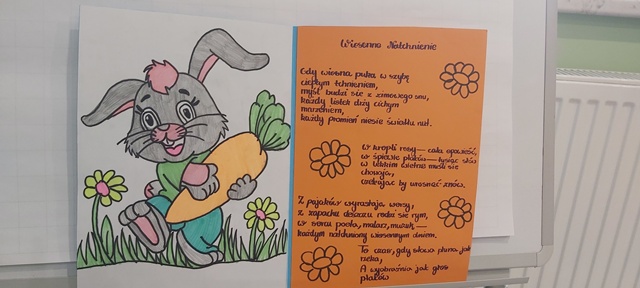 Wiosenne Natchnienie
Gdy wiosna puka w szybę
ciepłym tchnieniem,
myśl budzi się z zimowego snu,
każdy listek drży cichym
marzeniem,
każdy promień niesie światła nut.
W kropli rosy — cała opowieść,
w śpiewie ptaków — tysiąc słów
w lekkim wietrze muśl się
chowają,
by urosnąć znów.
Z pąków wyrastają wersy,
z zapachu deszczu rodzi się rym,
w sercu poeta, malarz, muzyk —
każdy natchniony wiosennym dniem.
To czas, gdy słowa płyną jak
rzeka,
A wyobraźnia jak głos
ptaków